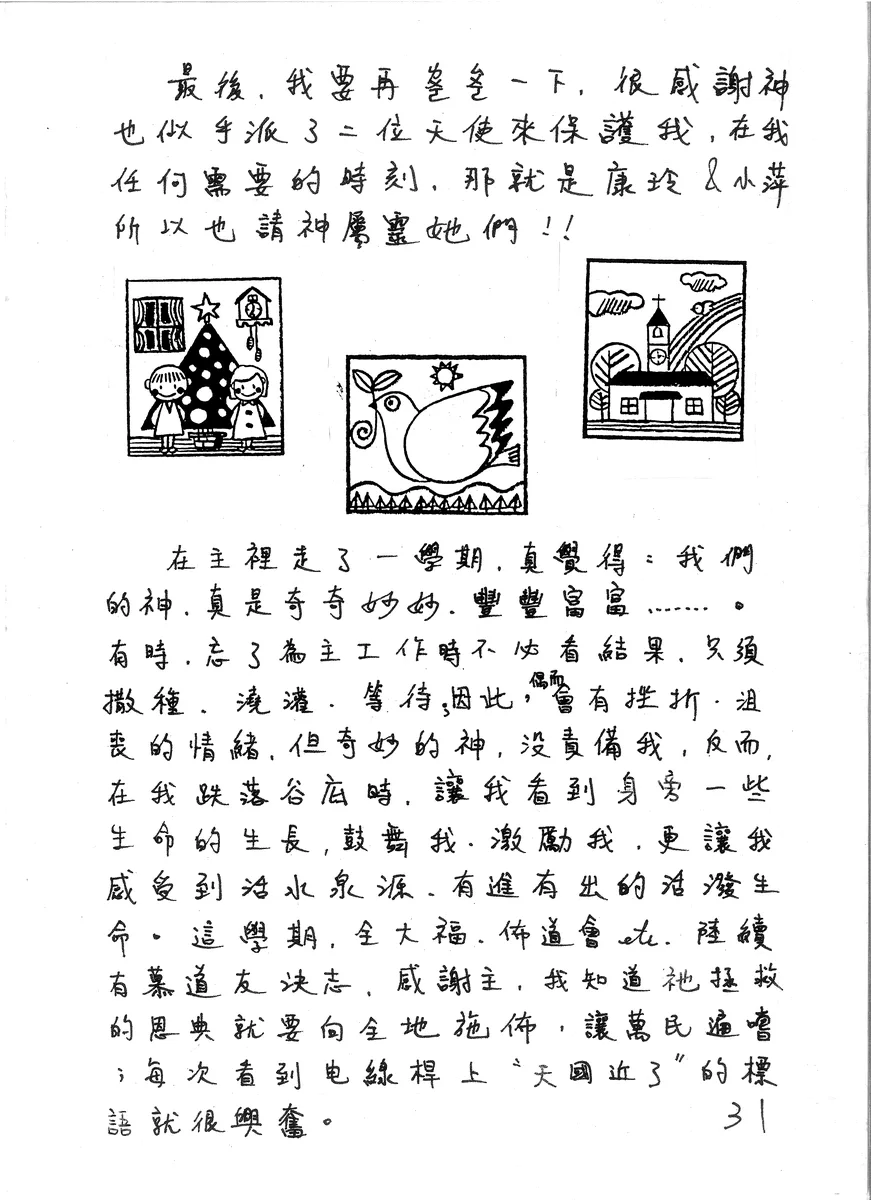 最後，我要再爸爸一下，很感謝神
也似乎派了二位天使來保護我，在我
任何需要的時刻，那就是康玲&小萍
所以也請神屬靈她們！！
在主裡走了一學期，真覺得：我們
的神，真是奇奇妙妙、豐豐富富……。
有時，忘了為主工作時不必看結果，只須
撒種、澆灌、等待；因此，偶而會有挫折、沮
喪的情緒，但奇妙的神，沒責備我，反而，
在我跌落谷底時，讓我看到身旁一些
生命的生長，鼓舞我、激勵我，更讓我
感受到活水泉源、有進有出的活潑生
命。這學期，全大福、佈道會etc. 陸續
有慕道友決志，感謝主，我知道祂拯救
的恩典就要向全地施佈，讓萬民遍嚐
；每次看到电線桿上“天國近了”的標
語就很興奮。
31